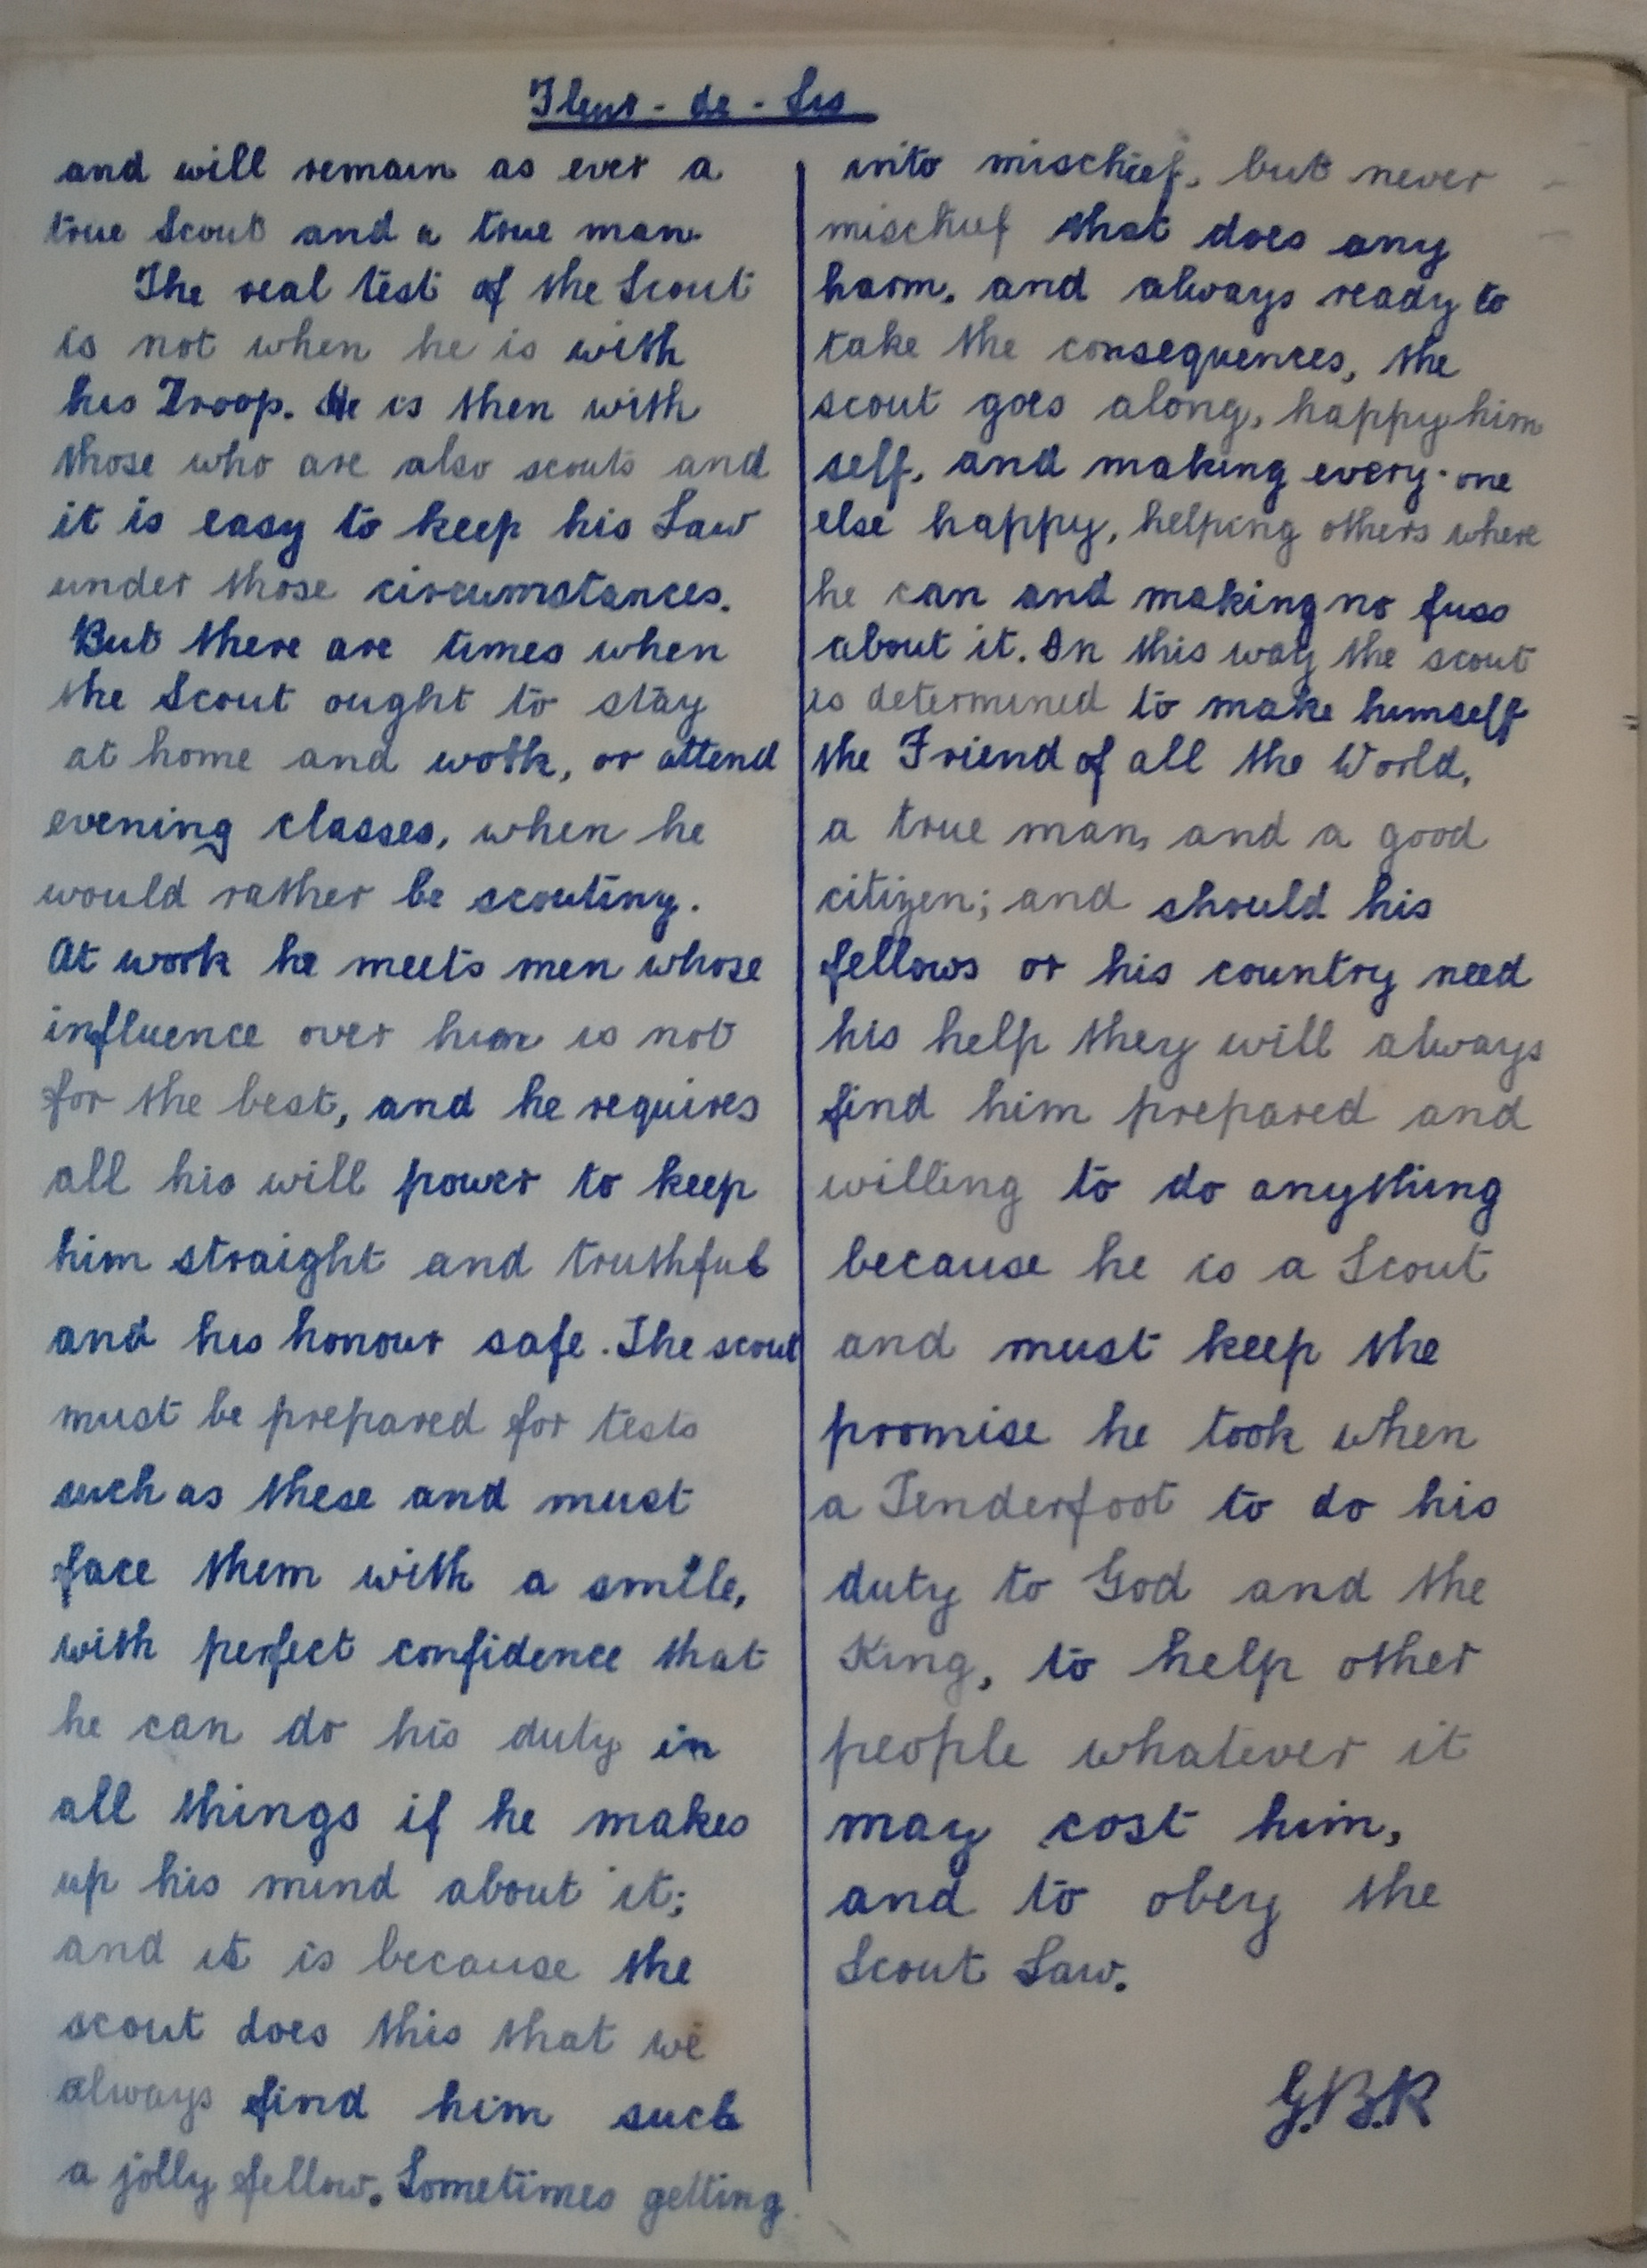 Fleur-de-Lis
and will remain as ever a
true Scout and a true man.
The real test of the Scout
is not when he is with
his Troop. He is then with
those who are also scouts and
it is easy to keep his Law
under those circumstances.
But there are times when
the Scout ought to stay
at home and work, or attend
evening classes, when he
would rather be scouting.
At work he meets men whose
influence over him is not
for the best, and he requires
all his will power to keep
him straight and truthful
and his honour safe. The scout
must be prepared for tests
such as these and must
face them with a smile,
with perfect confidence that
he can do his duty in
all things if he makes
up his mind about it;
and it is because the
scout does this that we
always find him such
a jolly fellow. Sometimes getting
into mischief, but never
mischief that does any
harm, and always ready to
take the consequences, the
scout goes along, happy him
self, and making every-one
else happy, helping others where
he can and making no fuss
about it. In this way the scout
is determined to make himself
the Friend of all the World,
a true man, and a good
citizen; and should his
fellows or his country need
his help they will always
find him prepared and
willing to do anything
because he is a Scout
and must keep the
promise he took when
a Tenderfoot to do his
duty to God and the
King, to help other
people whatever it
may cost him,
and to obey the
Scout Law.
G.B.R